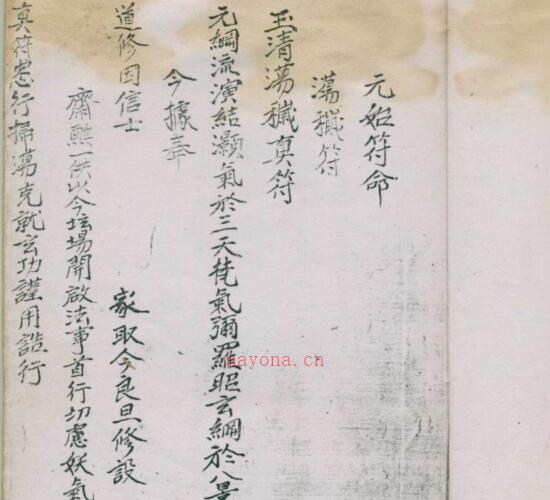 元始符命
蕩穢符
玉清蕩穢真符
元綱流演結灝氣於三天梵氣彌羅昭玄綱於八景
今據奉
道修因信士
家取今良旦修設
齋醮一供以今坛場開啟法事首行切慮妖氣
真符悉行掃蕩克就玄功謹用誥行
nayona.cn